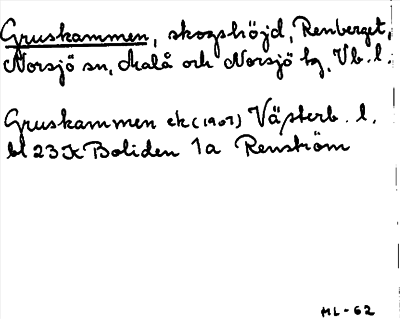 Gruskammen, skogshöjd, Renberget,
Norsjö sn, Malå och Norsjö tg, Vb. l.
Gruskammen ek (1907) Västerb. l.
bl 23 K Boliden 1a Renström
ML-62